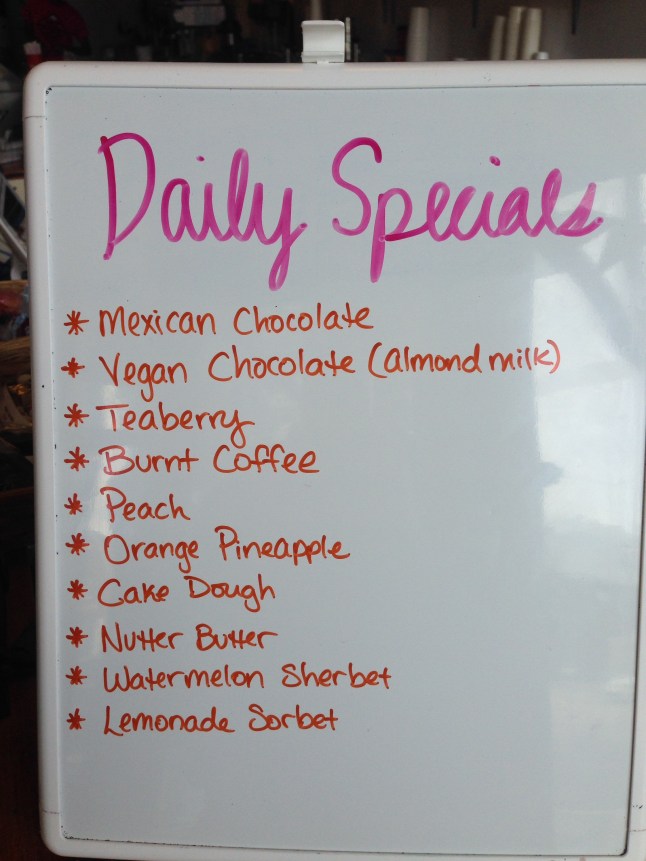 Daily Specials
* Mexican Chocolate
* Vegan Chocolate (almond milk)
* Teaberry
* Burnt Coffee
* Peach
* Orange Pineapple
* Cake Dough
* Nutter Butter
* Watermelon Sherbet
* Lemonade Sorbet